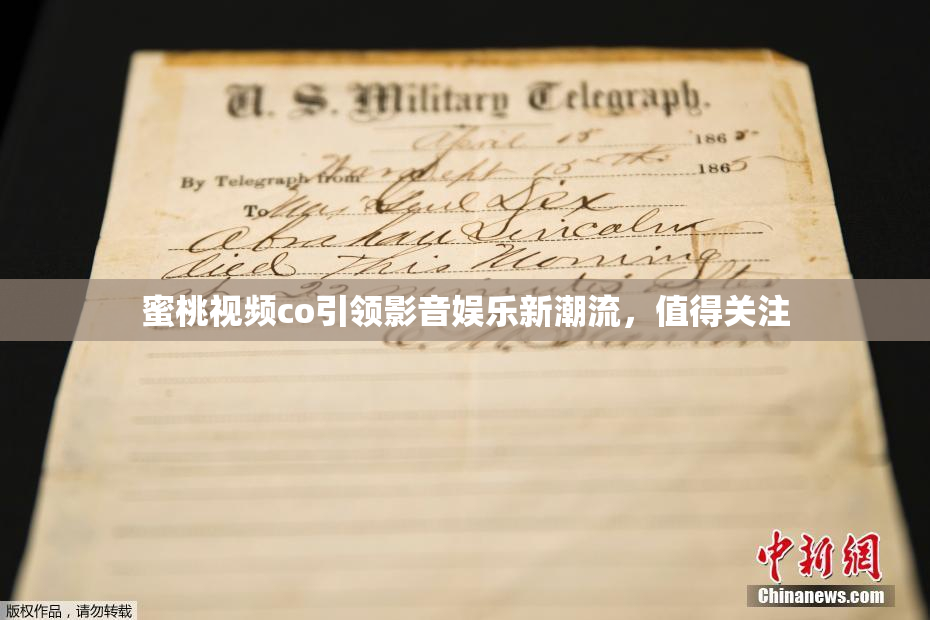 U. S. Military Telegraph.
April 15 1865
By Telegraph from War Dept 15th 1865
To Maj Genl Dix
Abraham Lincoln
died This Morning
at 22 minutes after
蜜桃视频co引领影音娱乐新潮流，值得关注
E. M. Stanton
中新網
Chinanews.com
版权作品，请勿转载